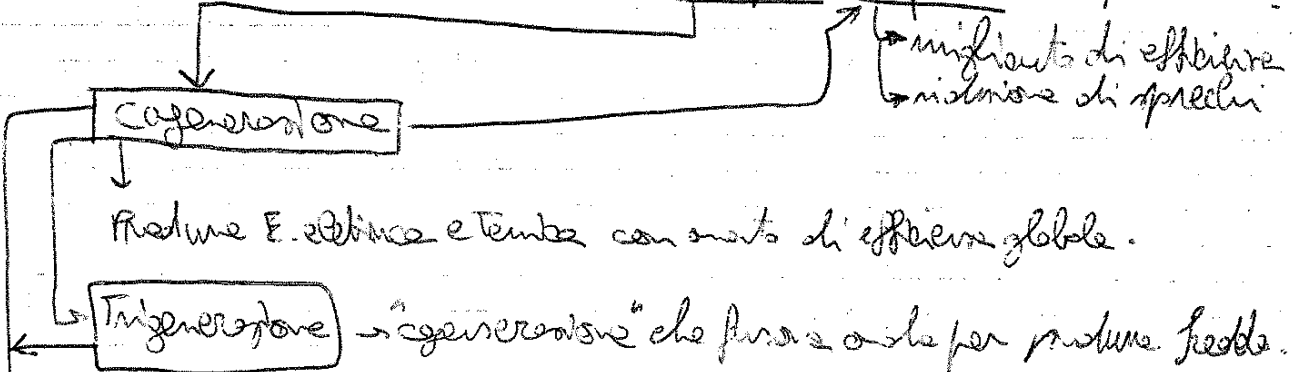 miglioramento di efficienza
riduzione di sprechi
Cogenerazione
Produrre E. elettrica e Termica con aumento di efficienza globale.
Trigenerazione "cogenerazione" che funziona anche per produrre freddo.